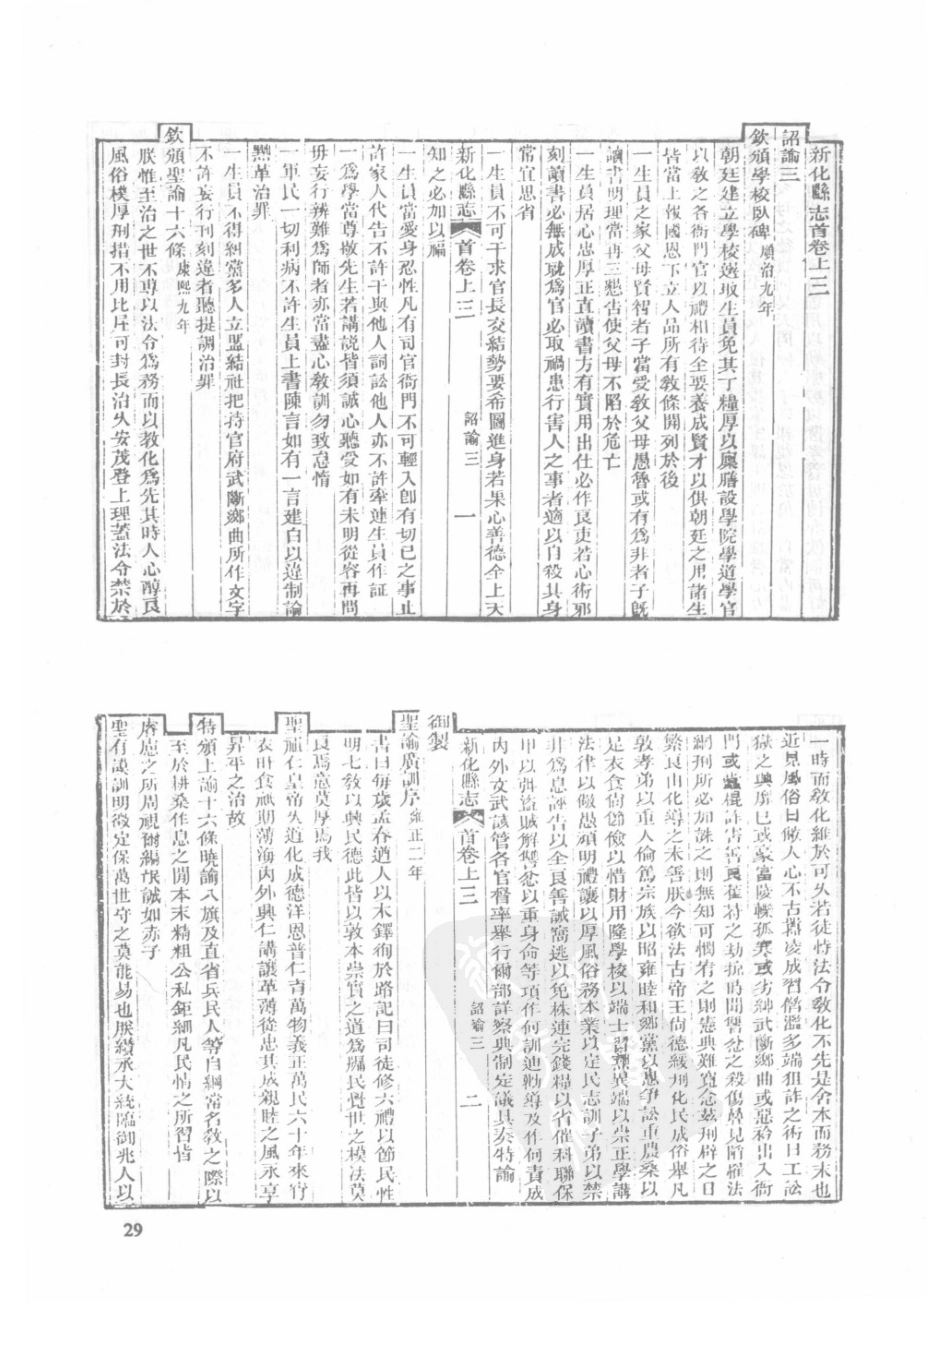 新化縣志首卷上三
詔諭三
欽頒學校臥碑 順治九年
朝廷建立學校選取生員免其丁糧厚以廩膳設學院學道學官
以教之各衙門官以禮相待全要養成賢才以供朝廷之用諸生
皆當上報國恩下立人品所有教條開列於後
一生員之家父母賢智者子當受教父母愚魯或有爲非者子既
讀書明理當再三懇告使父母不陷於危亡
一生員居心忠厚正直讀書方有實用出仕必作良吏若心術邪
刻讀書必無成就爲官必取禍患行害人之事者適以自殺其身
常宜思省
一生員不可干求官長交結勢要希圖進身若果心善德全上天
新化縣志 首卷上三 詔諭三 一
知之必加以福
一生員當愛身忍性凡有司官衙門不可輕入卽有切已之事止
許家人代告不許干與他人詞訟他人亦不許牽連生員作証
一爲學當尊敬先生若講說皆須誠心聽受如有未明從容再問
毋妄行辨難爲師者亦當盡心敎訓勿致怠惰
一軍民一切利病不許生員上書陳言如有一言建白以違制論
黜革治罪
一生員不得糾黨多人立盟結社把持官府武斷鄉曲所作文字
不許妄行刊刻違者聽提調治罪
欽頒聖諭十六條 康熙九年
朕惟至治之世不專以法令爲務而以教化爲先其時人心醇良
風俗樸厚刑措不用比屋可封長治久安茂登上理蓋法令禁於
一時而敎化維於可久若徒恃法令敎化不先是舍本而務末也
近見風俗日敝人心不古囂凌成習僭濫多端狙詐之術日工訟
獄之興靡已或豪富陵轢孤寒或劣紳武斷鄉曲或惡衿出入衙
門或蠹棍詐害善良萑苻之劫掠時聞讐忿之殺傷疊見陷罹法
網刑所必加誅之則無知可憫宥之則憲典難寬念茲刑辟之日
繁良由化導之未善朕今欲法古帝王尚德緩刑化民成俗舉凡
敦孝弟以重人倫篤宗族以昭雍睦和鄉黨以息爭訟重農桑以
足衣食尙節儉以惜財用隆學校以端士習黜異端以崇正學講
法律以儆愚頑明禮讓以厚風俗務本業以定民志訓子弟以禁
非爲息誣告以全良善誡窩逃以免株連完錢糧以省催科聯保
甲以弭盜賊解讐忿以重身命等項作何訓迪勸導及作何責成
內外文武該管各官督率舉行爾部詳察典制定議具奏特諭
新化縣志 首卷上三 詔諭三 二
御製
聖諭廣訓序 雍正二年
書曰每歲孟春遒人以木鐸徇於路記曰司徒修六禮以節民性
明七敎以興民德此皆以敦本崇實之道爲牖民覺世之模法莫
良焉意莫厚焉我
聖祖仁皇帝久道化成德洋恩普仁育萬物義正萬民六十年來宵
衣旰食祇期薄海內外興仁講讓革薄從忠共成親睦之風永享
昇平之治故
特頒上諭十六條曉諭八旗及直省兵民人等自綱常名敎之際以
至於耕桑作息之間本末精粗公私鉅細凡民情之所習皆
睿慮之所周視爾編氓誠如赤子
聖有謨訓明徵定保萬世守之莫能易也朕纘承大統臨御兆人以
29